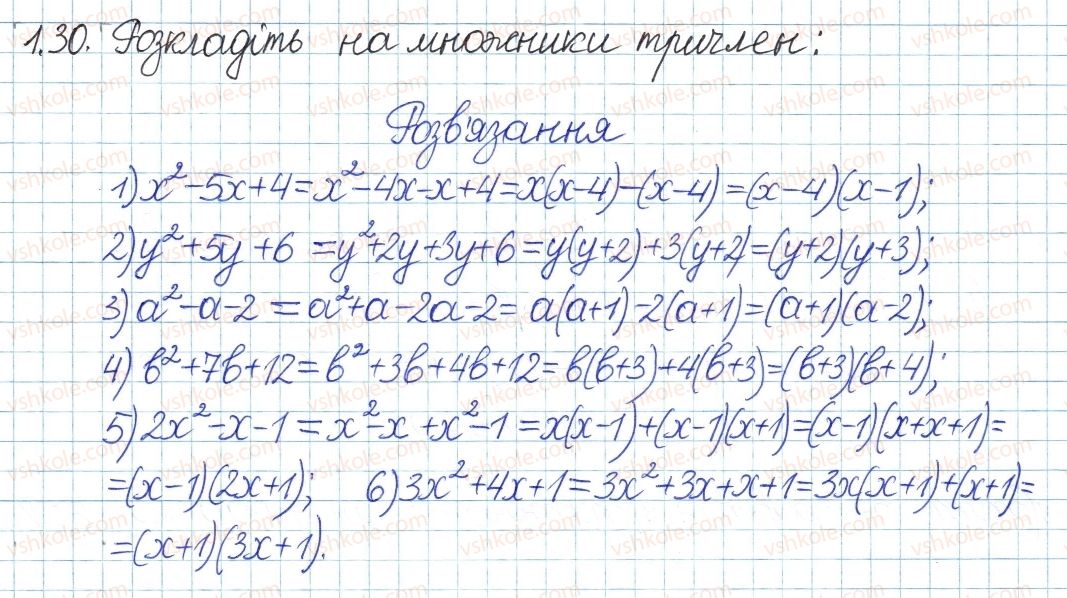 1.30. Розкладіть на множники тричлен:
Розв'язання
1) x²-5x+4=x²-4x-x+4=x(x-4)-(x-4)=(x-4)(x-1);
2) y²+5y+6=y²+2y+3y+6=y(y+2)+3(y+2)=(y+2)(y+3);
3) a²-a-2=a²+a-2a-2=a(a+1)-2(a+1)=(a+1)(a-2);
4) b²+7b+12=b²+3b+4b+12=b(b+3)+4(b+3)=(b+3)(b+4);
5) 2x²-x-1=x²-x+x²-1=x(x-1)+(x-1)(x+1)=(x-1)(x+x+1)=
=(x-1)(2x+1); 6) 3x²+4x+1=3x²+3x+x+1=3x(x+1)+(x+1)=
=(x+1)(3x+1).